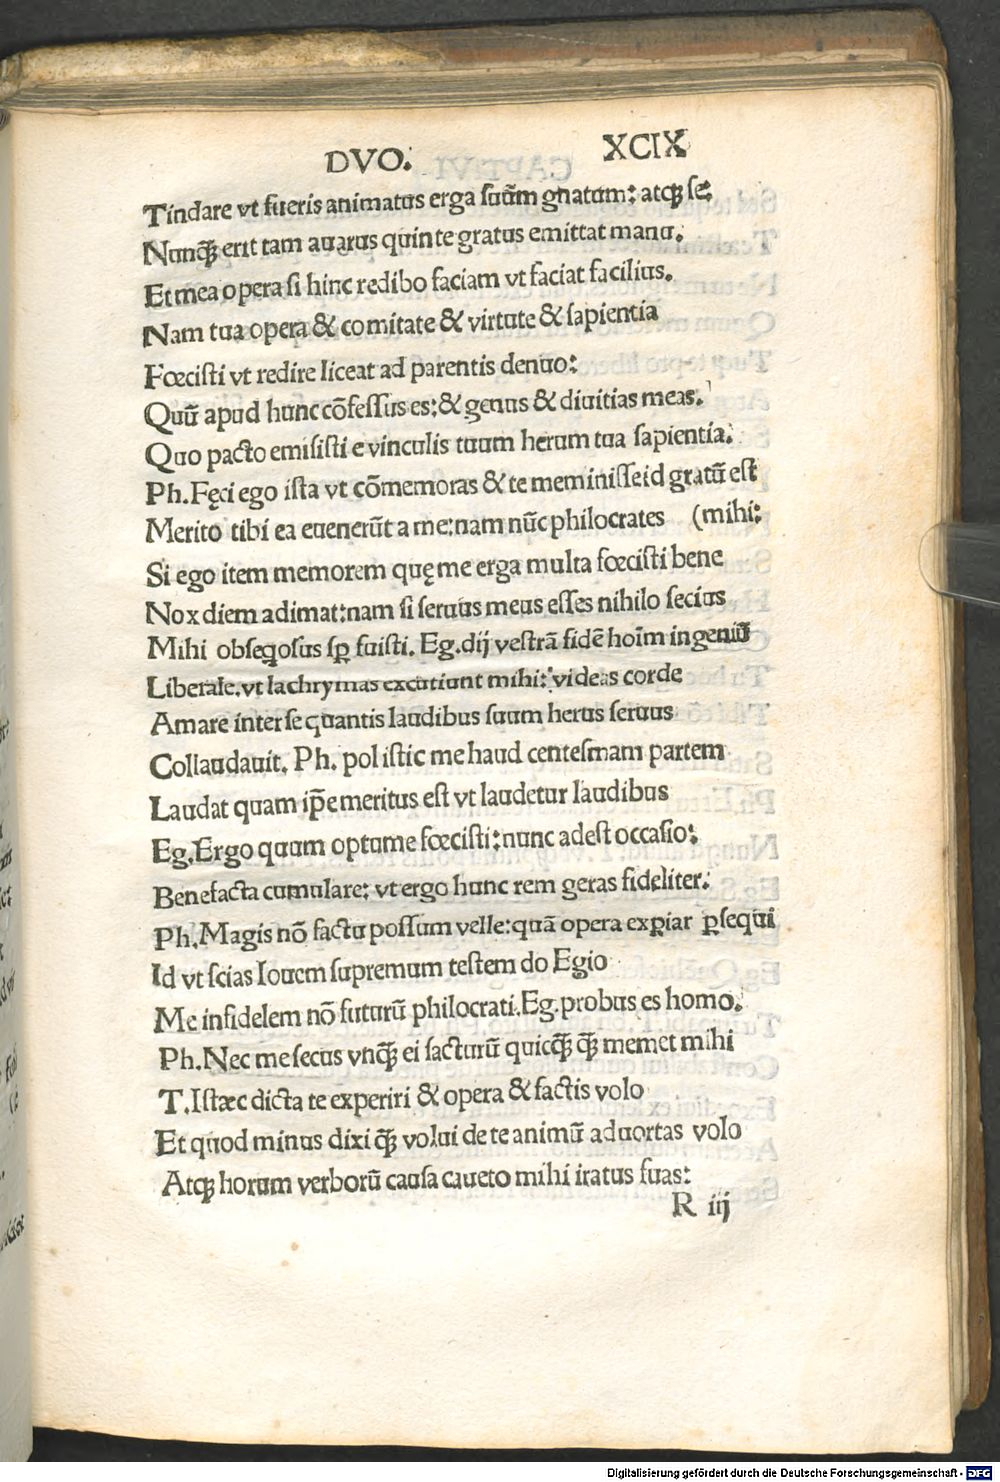 DVO. XCIX
Tindare vt fueris animatus erga suũm gnatum: atqꝫ se:
Nunqꝫ̃ erit tam auarus quin te gratus emittat manu.
Et mea opera si hinc redibo faciam vt faciat facilius.
Nam tua opera & comitate & virtute & sapientia
Fœcisti vt redire liceat ad parentis denuo:
Quũ apud hunc cõfessus es: & genus & diuitias meas.
Quo pacto emisisti e vinculis tuum herum tua sapientia.
Ph. Fęci ego ista vt cõmemoras & te meminisse id gratũ est
Merito tibi ea euenerũt a me: nam nũc philocrates (mihi:
Si ego item memorem quę me erga multa fœcisti bene
Nox diem adimat: nam si seruus meus esses nihilo secius
Mihi obseqosus sꝑ fuisti. Eg. dij vestrã fidẽ hoĩm ingeniũ
Liberale. vt lachrymas excutiunt mihi: videas corde
Amare inter se quantis laudibus suum herus seruus
Collaudauit. Ph. pol istic me haud centesmam partem
Laudat quam ip̃e meritus est vt laudetur laudibus
Eg. Ergo quum optume fœcisti: nunc adest occasio:
Benefacta cumulare: vt ergo hunc rem geras fideliter.
Ph. Magis nõ factu possum velle: quã opera exꝑiar ꝑsequi
Id vt scias Iouem supremum testem do Egio
Me infidelem nõ futurũ philocrati. Eg. probus es homo.
Ph. Nec me secus vnqꝫ̃ ei facturũ quicqꝫ̃ qꝫ̃ memet mihi
T. Istæc dicta te experiri & opera & factis volo
Et quod minus dixi qꝫ̃ volui de te animũ aduortas volo
Atqꝫ horum verborũ causa caueto mihi iratus fuas:
R iij
Digitalisierung gefördert durch die Deutsche Forschungsgemeinschaft - DFG